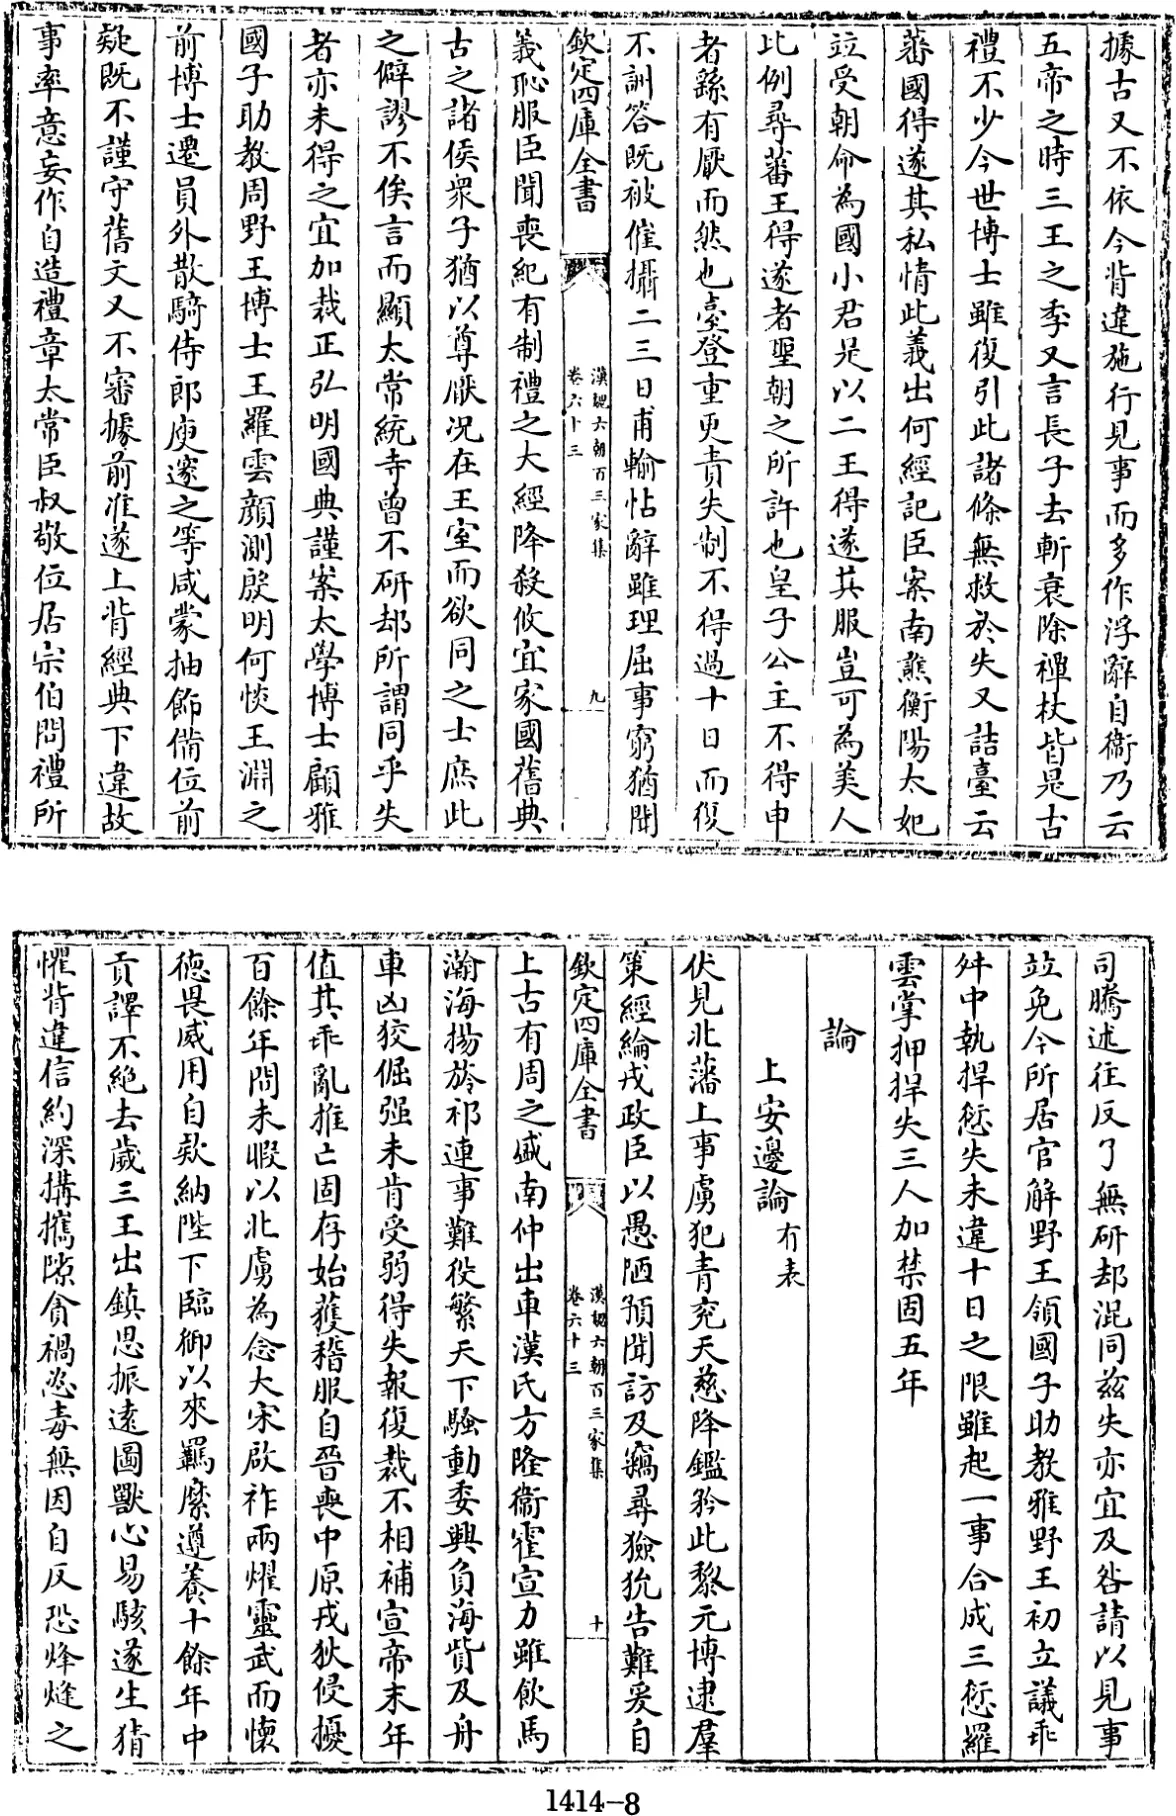 據古又不依今背違施行見事而多作浮辭自衞乃云
五帝之時三王之季又言長子去斬衰除禫杖皆是古
禮不少今世博士雖復引此諸條無救於失又詰臺云
蕃國得遂其私情此義出何經記臣案南譙衡陽太妃
竝受朝命為國小君是以二王得遂其服豈可為美人
比例尋蕃王得遂者聖朝之所許也皇子公主不得申
者繇有厭而然也臺登重更責失制不得過十日而復
不訓答既被催攝二三日甫輸怗辭雖理屈事窮猶聞
欽定四庫全書
漢魏六朝百三家集
卷六十三
九
義恥服臣聞喪紀有制禮之大經降殺攸宜家國舊典
古之諸侯衆子猶以尊厭况在王室而欲同之士庶此
之僻謬不俟言而顯太常統寺曾不研却所謂同乎失
者亦未得之宜加裁正弘明國典謹案太學博士顧雅
國子助教周野王博士王羅雲顔測殷明何惔王淵之
前博士遷員外散騎侍郎庾邃之等咸蒙抽飾備位前
疑既不謹守舊文又不審據前准遂上背經典下違故
事率意妄作自造禮章太常臣叔敬位居宗伯問禮所
司騰述往反了無研却混同兹失亦宜及咎請以見事
竝免今所居官解野王領國子助教雅野王初立議乖
舛中執捍愆失未違十日之限雖起一事合成三愆羅
雲掌押捍失三人加禁固五年
論
上安邊論有表
伏見北藩上事虜犯青兖天慈降鑑矜此黎元博逮羣
策經綸戎政臣以愚陋預聞訪及竊尋獫狁告難爰自
欽定四庫全書
漢魏六朝百三家集
卷六十三
十
上古有周之盛南仲出車漢氏方隆衞霍宣力雖飲馬
瀚海揚旍祁連事難役繁天下騷動委輿負海貲及舟
車凶狡倔强未肯受弱得失報復裁不相補宣帝末年
值其乖亂推亡固存始獲稽服自晉喪中原戎狄侵擾
百餘年間未暇以北虜為念大宋啟祚兩燿靈武而懷
德畏威用自款納陛下臨御以來羈縻遵養十餘年中
貢譯不絶去歲三王出鎮思振遠圖獸心易駭遂生猜
懼背違信約深搆攜隙貪禍恣毒無因自反恐烽燧之
1414-8